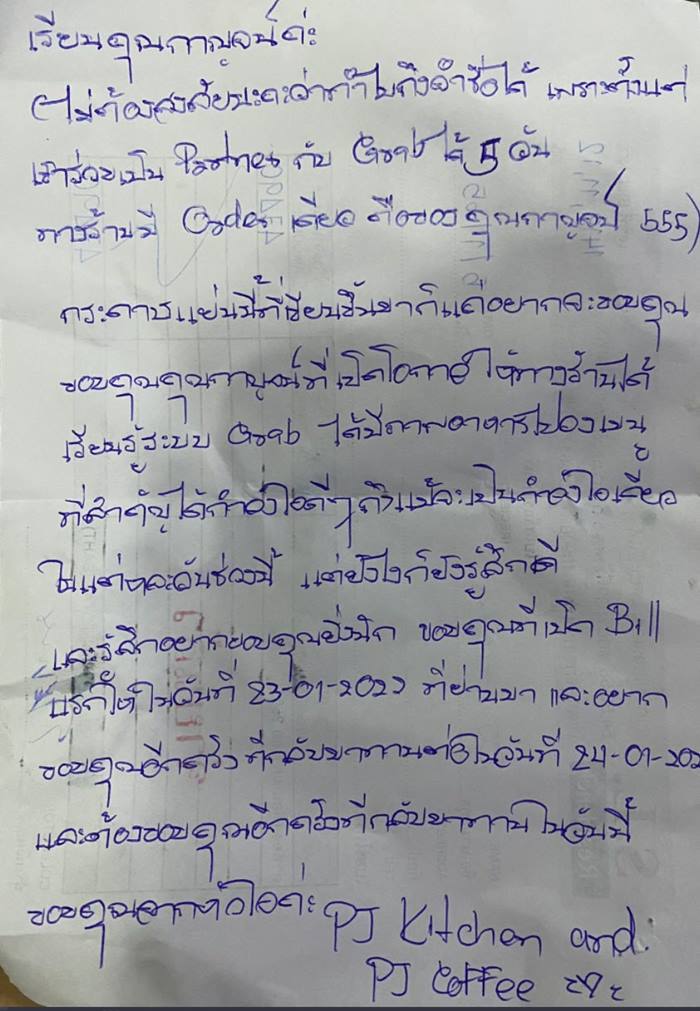 เรียนคุณกาญจน์ค่ะ
(ไม่ต้องสงสัยนะคะว่าทำไมถึงจำชื่อได้ เพราะตั้งแต่
เข้าร่วมเป็น Partner กับ Grab ได้ 5 วัน
ทางร้านมี Order เดียว คือของคุณกาญจน์ 555)
กระดาษแผ่นนี้ที่เขียนขึ้นมาก็แค่อยากจะขอบคุณ
ขอบคุณคุณกาญจน์ที่เปิดโอกาสให้ทางร้านได้
เรียนรู้ระบบ Grab ได้มี
ที่สำคัญได้กำลังใจดีๆ ถึงแม้จะเป็นกำลังใจเดียว
ในแต่หละวันช่วงนี้ แต่ยังไงก็ยังรู้สึกดี
และรู้สึกอยากขอบคุณยิ่งนัก ขอบคุณที่เปิด Bill
แรกให้ในวันที่ 23-01-2022 ที่ผ่านมา และอยาก
ขอบคุณอีกครั้ง ที่กลับมาทานต่อในวันที่ 24-01-202
และต้องขอบคุณอีกครั้งที่กลับมาทานในวันนี้
ขอบคุณจากหัวใจค่ะ PJ Kitchen and
PJ Coffee